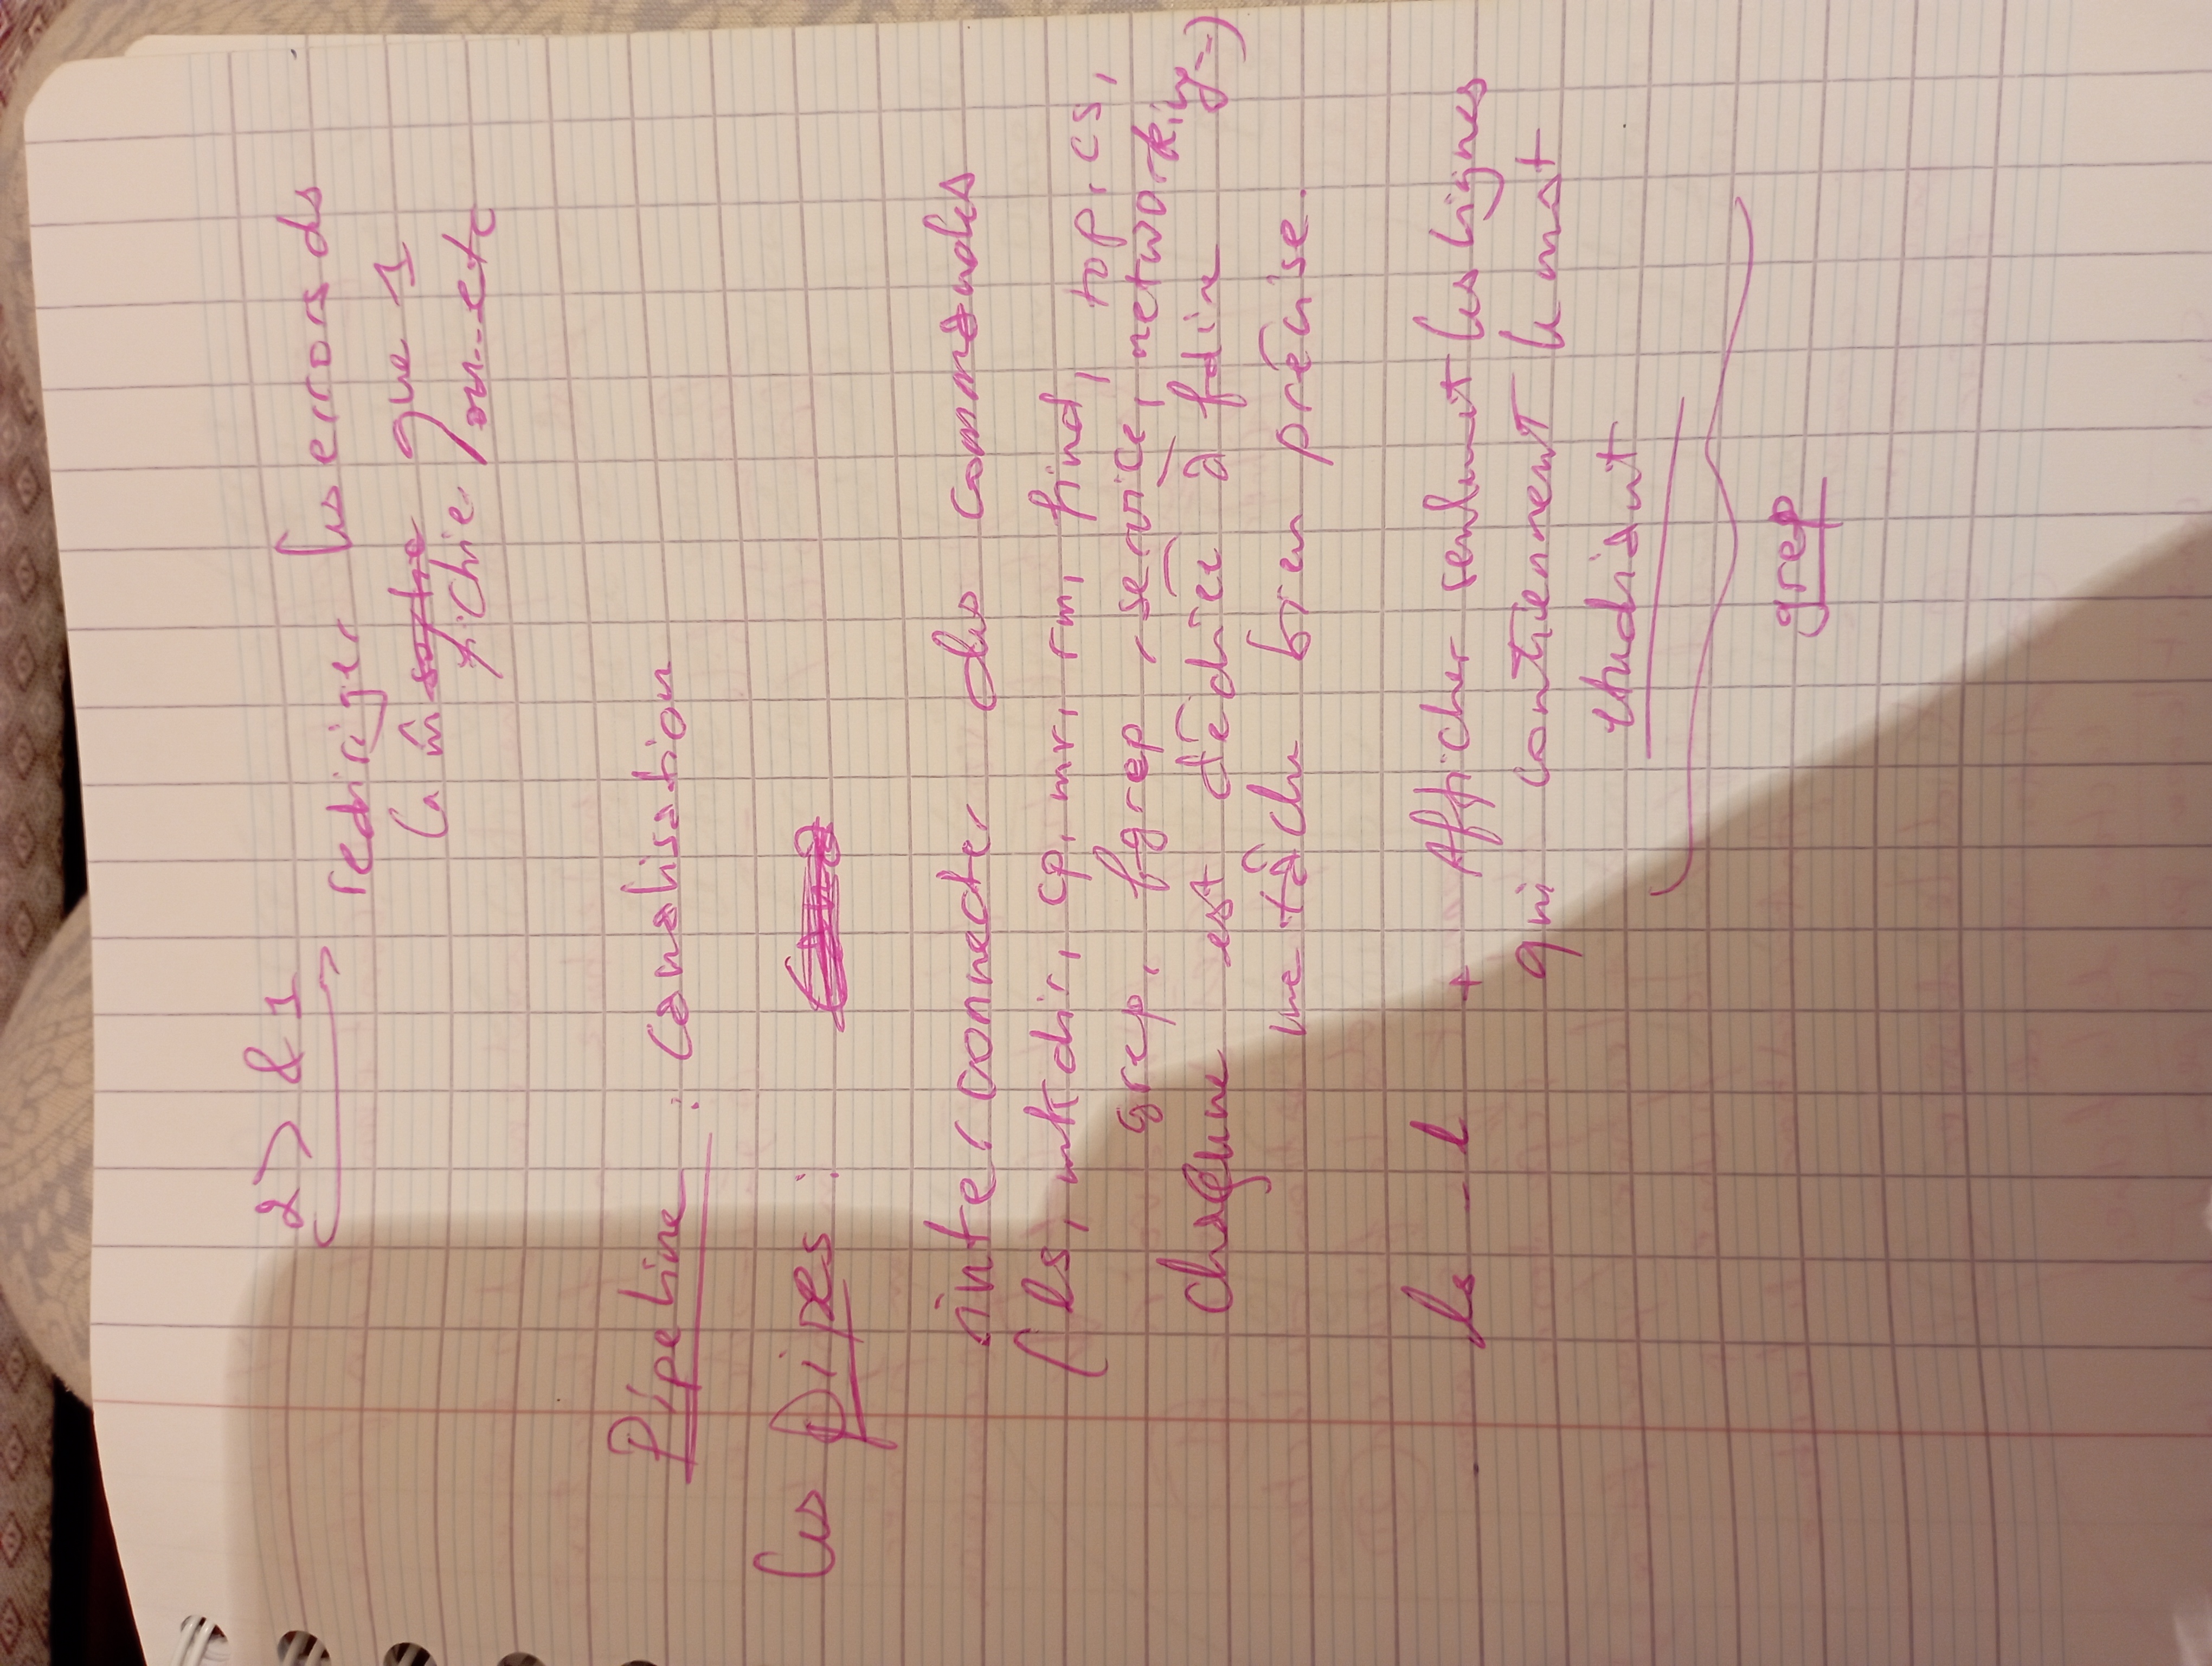 2>&1
rediriger les errors ds
le m̂ sortie que 1
fichier / ou...etc
Pipeline : Canalisation
Les Pipes :
interconnecter des commandes
(ls, mkdir, cp, mv, rm, find, top, cs,
grep, fgrep, service, networking...)
chaqune est dédiée à faire
une tâche bien précise.
ls -l + Afficher seulement les lignes
qui contiennent le mot
etudiant
grep